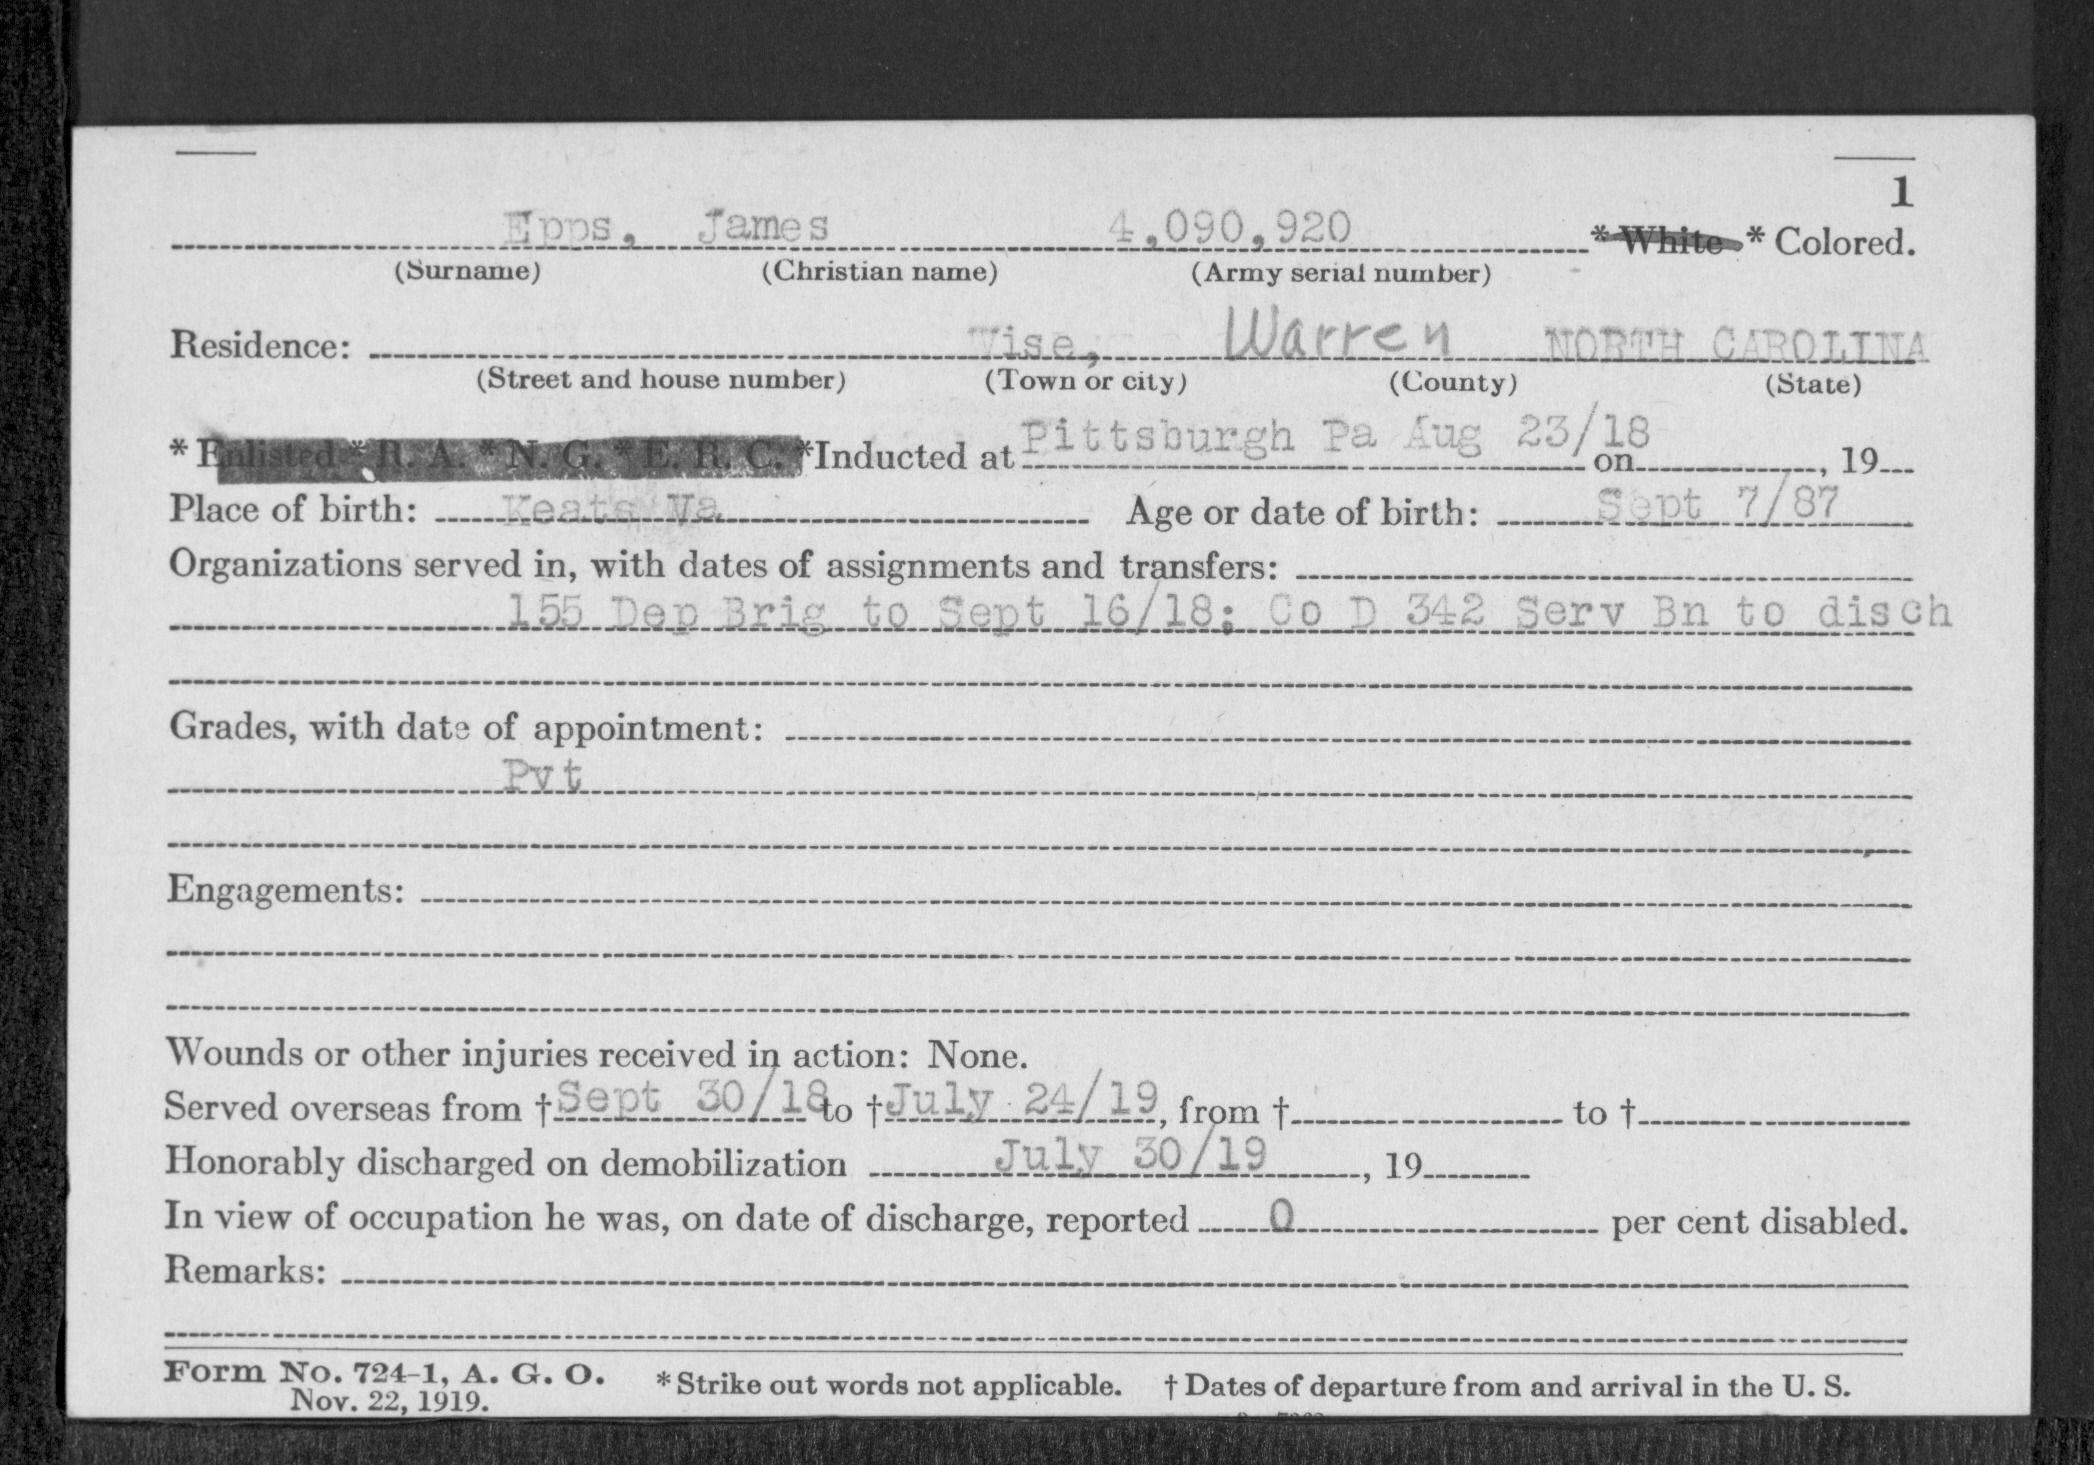 1
Epps, James 4,090,920 * White * Colored.
(Surname) (Christian name) (Army serial number)
Residence: Wise, Warren NORTH CAROLINA
(Street and house number) (Town or city) (County) (State)
* Enlisted * R. A. * N. G. * E. R. C. *Inducted at Pittsburgh Pa Aug 23/18 on , 19
Place of birth: Keats Va Age or date of birth: Sept 7/87
Organizations served in, with dates of assignments and transfers:
155 Dep Brig to Sept 16/18; Co D 342 Serv Bn to disch
Grades, with date of appointment:
Pvt
Engagements:
Wounds or other injuries received in action: None.
Served overseas from † Sept 30/18 to † July 24/19, from † to †
Honorably discharged on demobilization July 30/19, 19
In view of occupation he was, on date of discharge, reported 0 per cent disabled.
Remarks:
Form No. 724-1, A. G. O. * Strike out words not applicable. † Dates of departure from and arrival in the U. S.
Nov. 22, 1919.